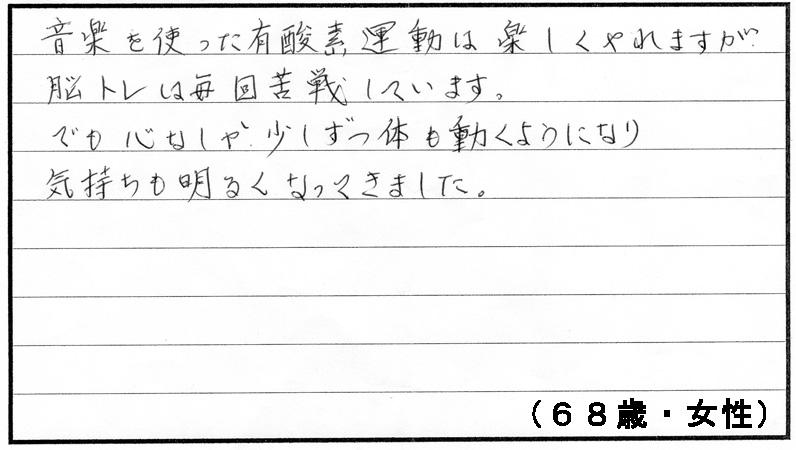 音楽を使った有酸素運動は楽しくやれますが
脳トレは毎回苦戦しています。
でも心なしか少しずつ体も動くようになり
気持ちも明るくなってきました。
（６８歳・女性）